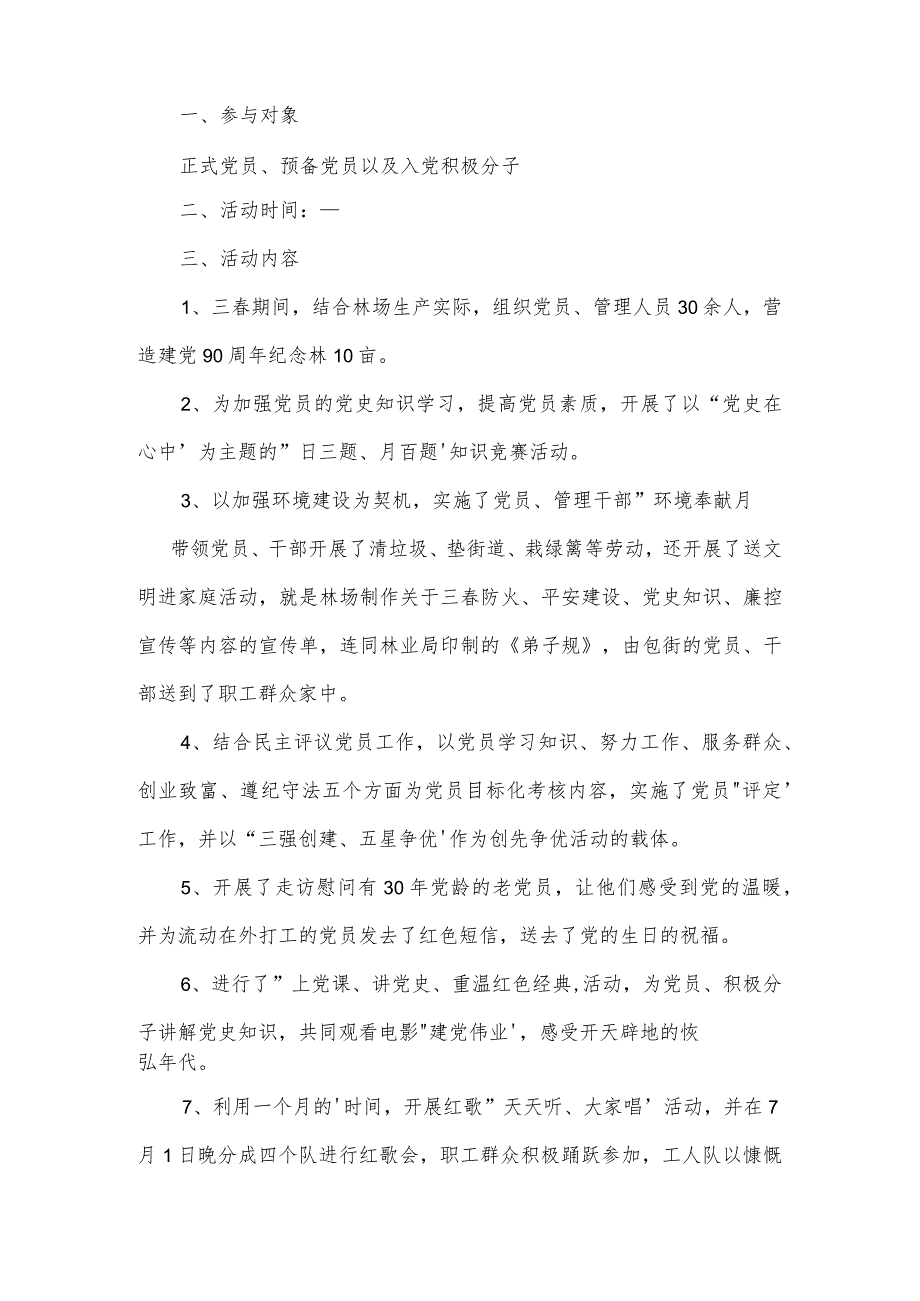 一、参与对象
正式党员、预备党员以及入党积极分子
二、活动时间：—
三、活动内容
1、三春期间，结合林场生产实际，组织党员、管理人员30余人，营
造建党90周年纪念林10亩。
2、为加强党员的党史知识学习，提高党员素质，开展了以“党史在
心中’为主题的”日三题、月百题'知识竞赛活动。
3、以加强环境建设为契机，实施了党员、管理干部”环境奉献月
带领党员、干部开展了清垃圾、垫街道、栽绿篱等劳动，还开展了送文
明进家庭活动，就是林场制作关于三春防火、平安建设、党史知识、廉控
宣传等内容的宣传单，连同林业局印制的《弟子规》，由包街的党员、干
部送到了职工群众家中。
4、结合民主评议党员工作，以党员学习知识、努力工作、服务群众、
创业致富、遵纪守法五个方面为党员目标化考核内容，实施了党员"评定’
工作，并以“三强创建、五星争优'作为创先争优活动的载体。
5、开展了走访慰问有30年党龄的老党员，让他们感受到党的温暖，
并为流动在外打工的党员发去了红色短信，送去了党的生日的祝福。
6、进行了”上党课、讲党史、重温红色经典,活动，为党员、积极分
子讲解党史知识，共同观看电影"建党伟业'，感受开天辟地的恢
弘年代。
7、利用一个月的'时间，开展红歌”天天听、大家唱’活动，并在7
月1日晚分成四个队进行红歌会，职工群众积极踊跃参加，工人队以慷慨